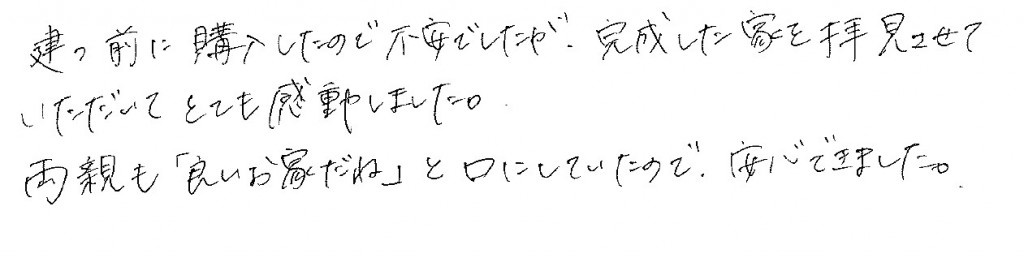 建つ前に購入したので不安でしたが、完成した家を拝見させて
いただいてとても感動しました。
両親も「良いお家だね」と口にしていたので、安心できました。